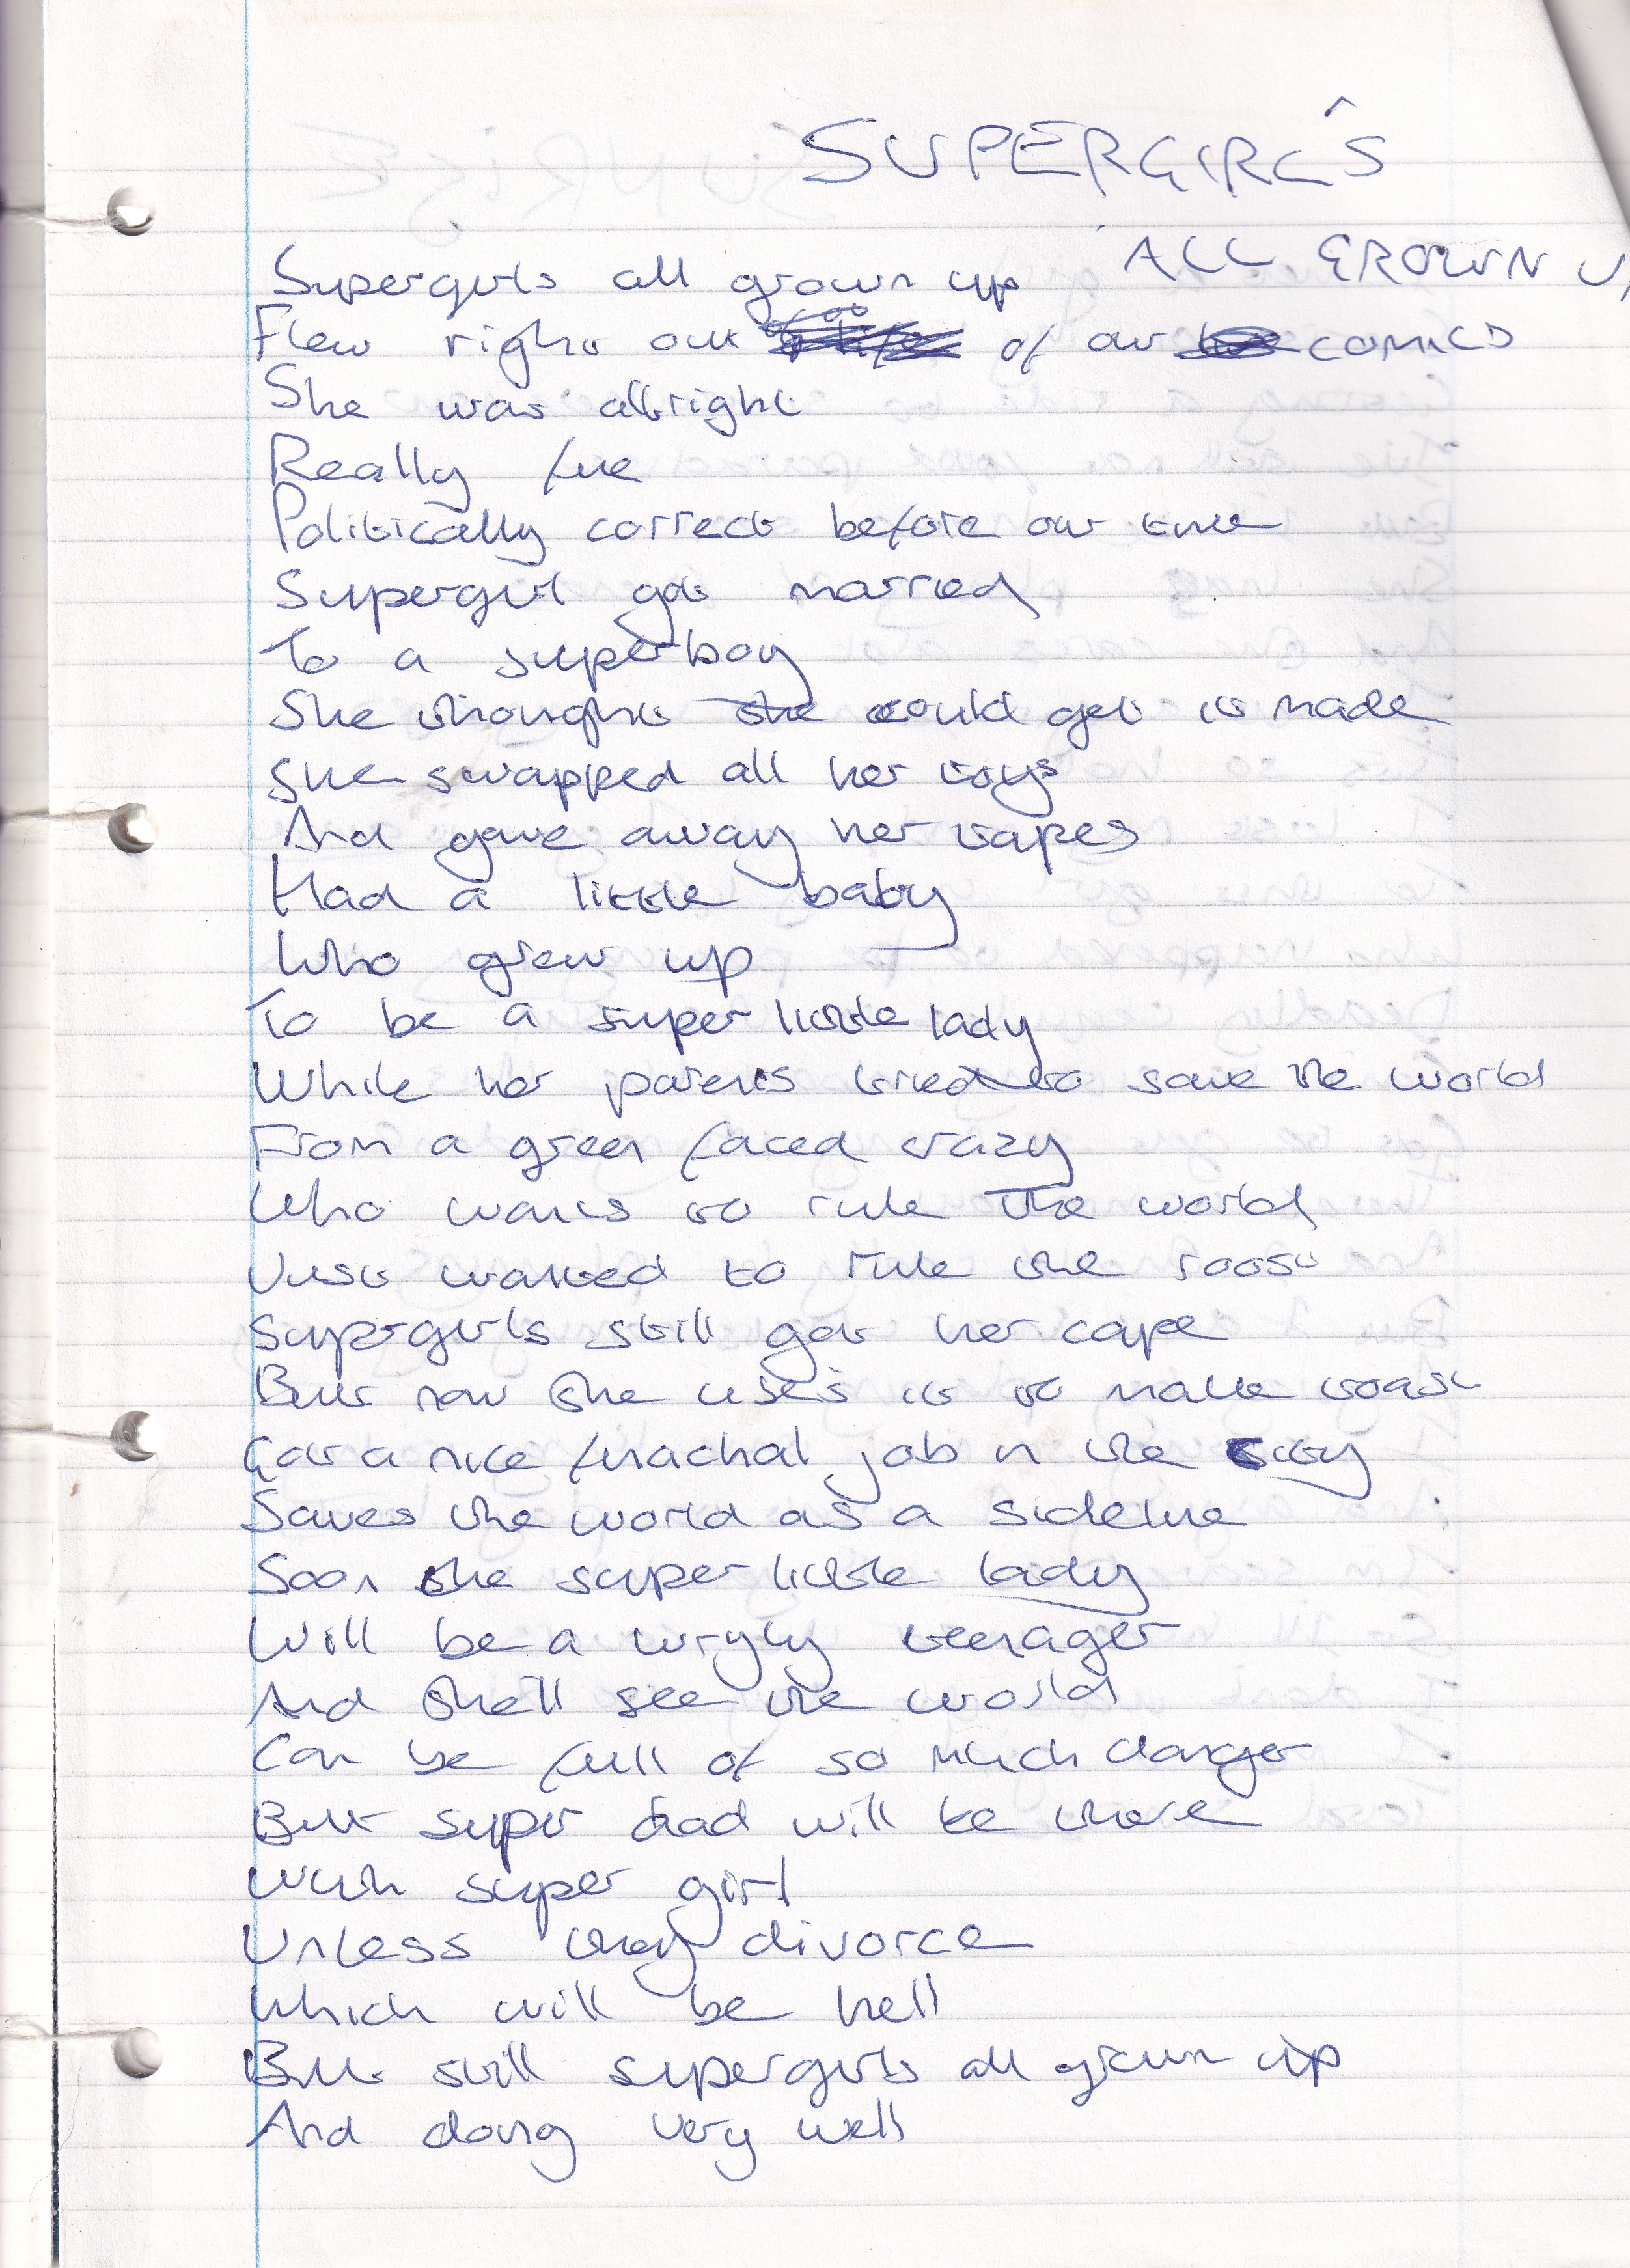 SUPERGIRL'S
ALL GROWN U
Supergirls all grown up
Flew right out of our comics
She was allright
Really fine
Politically correct before our time
Supergirl got married
To a superboy
She thought she could get it made
She swapped all her toys
And gave away her tapes
Had a little baby
Who grew up
To be a super little lady
While her parents tried to save the world
From a green faced crazy
Who wants to rule the world
Just wanted to rule the roost
Supergirls still got her cape
But now she uses it to make toast
Got a nice finachal job in the city
Saves the world as a sideline
Soon the super little lady
Will be a wryly teenager
And she'll see the world
Can be full of so much danger
But super dad will be there
With super girl
Unless they divorce
Which will be hell
But still supergirls all grown up
And doing very well